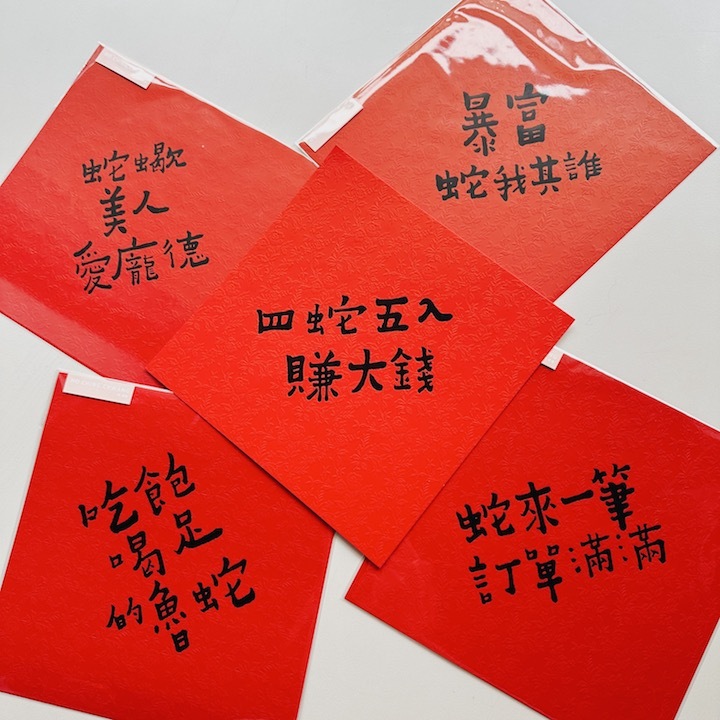 蛇蠍
美人
愛龐德
暴富
蛇我其誰
四蛇五入
賺大錢
吃飽
喝足
的魯蛇
蛇來一筆
訂單滿滿